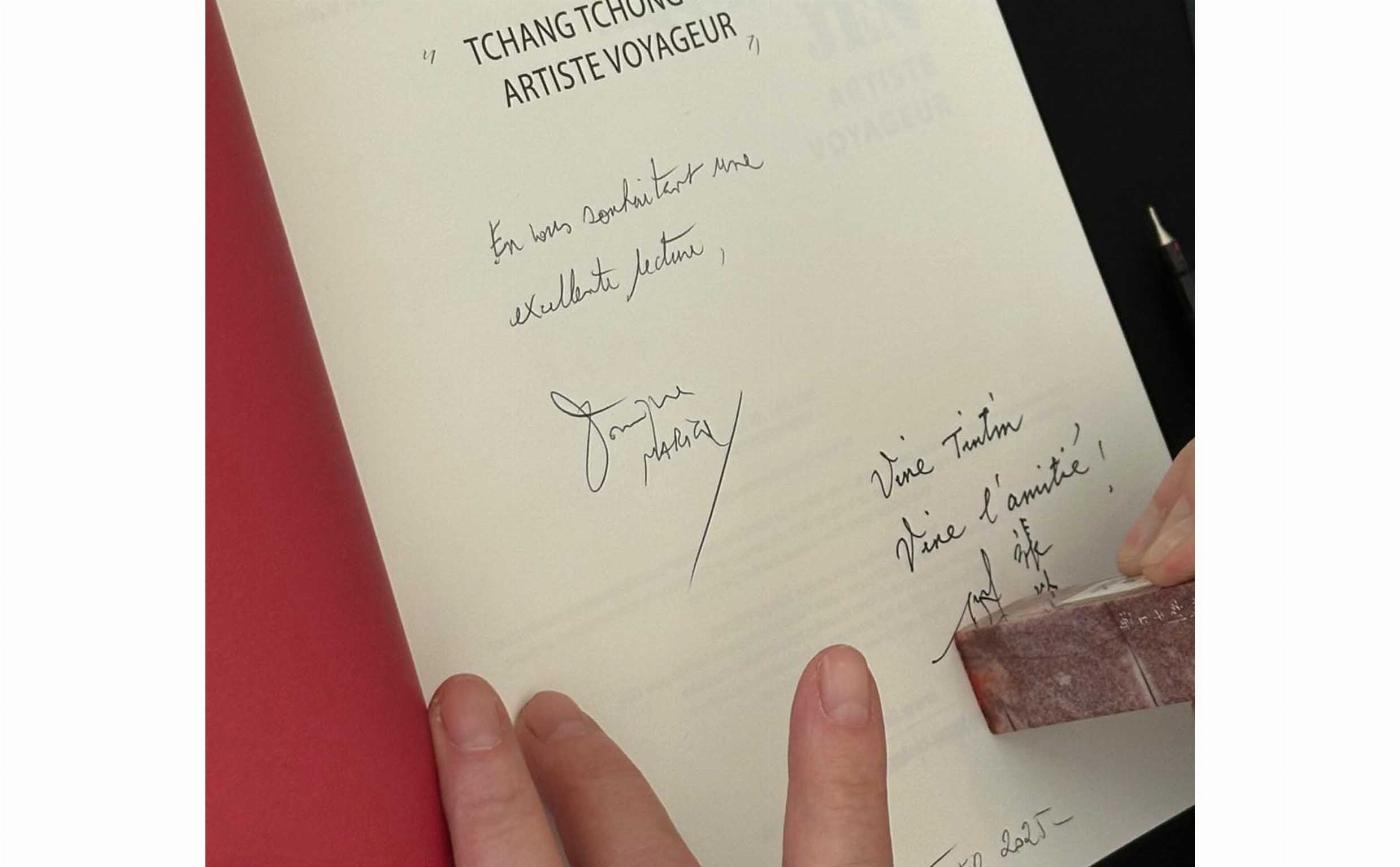 " TCHANG TCHONG
ARTISTE VOYAGEUR "
En vous souhaitant une
excellente lecture,
Dominique
MARICQ
Vive Tintin,
Vive l'amitié !
2025